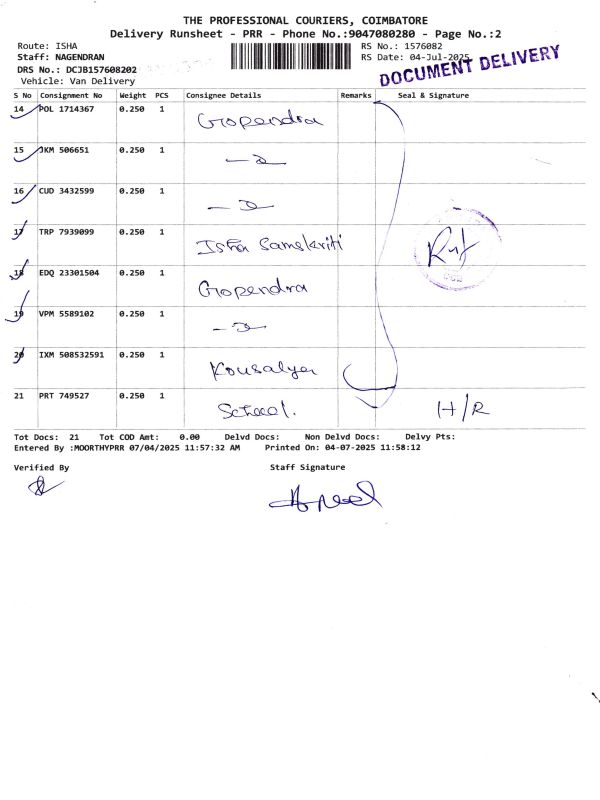 THE PROFESSIONAL COURIERS, COIMBATORE
Delivery Runsheet - PRR - Phone No.:9047080280 - Page No.:2
Route: ISHA
RS No.: 1576082
Staff: NAGENDRAN
RS Date: 04-Jul-2025
DRS No.: DCJB157608202
DOCUMENT DELIVERY
Vehicle: Van Delivery
S No Consignment No Weight PCS Consignee Details Remarks Seal & Signature
14 POL 1714367 0.250 1 Gopendra
15 JKM 506651 0.250 1
16 CUD 3432599 0.250 1
17 TRP 7939099 0.250 1 Isha Samskriti
18 EDQ 23301504 0.250 1 Gopendra
19 VPM 5589102 0.250 1
20 IXM 508532591 0.250 1 Kousalya
21 PRT 749527 0.250 1 School. H/R
Tot Docs: 21 Tot COD Amt: 0.00 Delvd Docs: Non Delvd Docs: Delvy Pts:
Entered By :MOORTHYPRR 07/04/2025 11:57:32 AM Printed On: 04-07-2025 11:58:12
Verified By Staff Signature